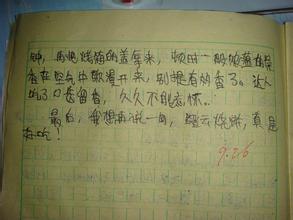 钟，再把烧箱的盖拿来，顿时一股浓
香在空气中散漫开来，别提有多香了。让人
吃了口齿留香，久久不能忘怀。
最后，我想再说一句，烧，真是
好吃！
9.26